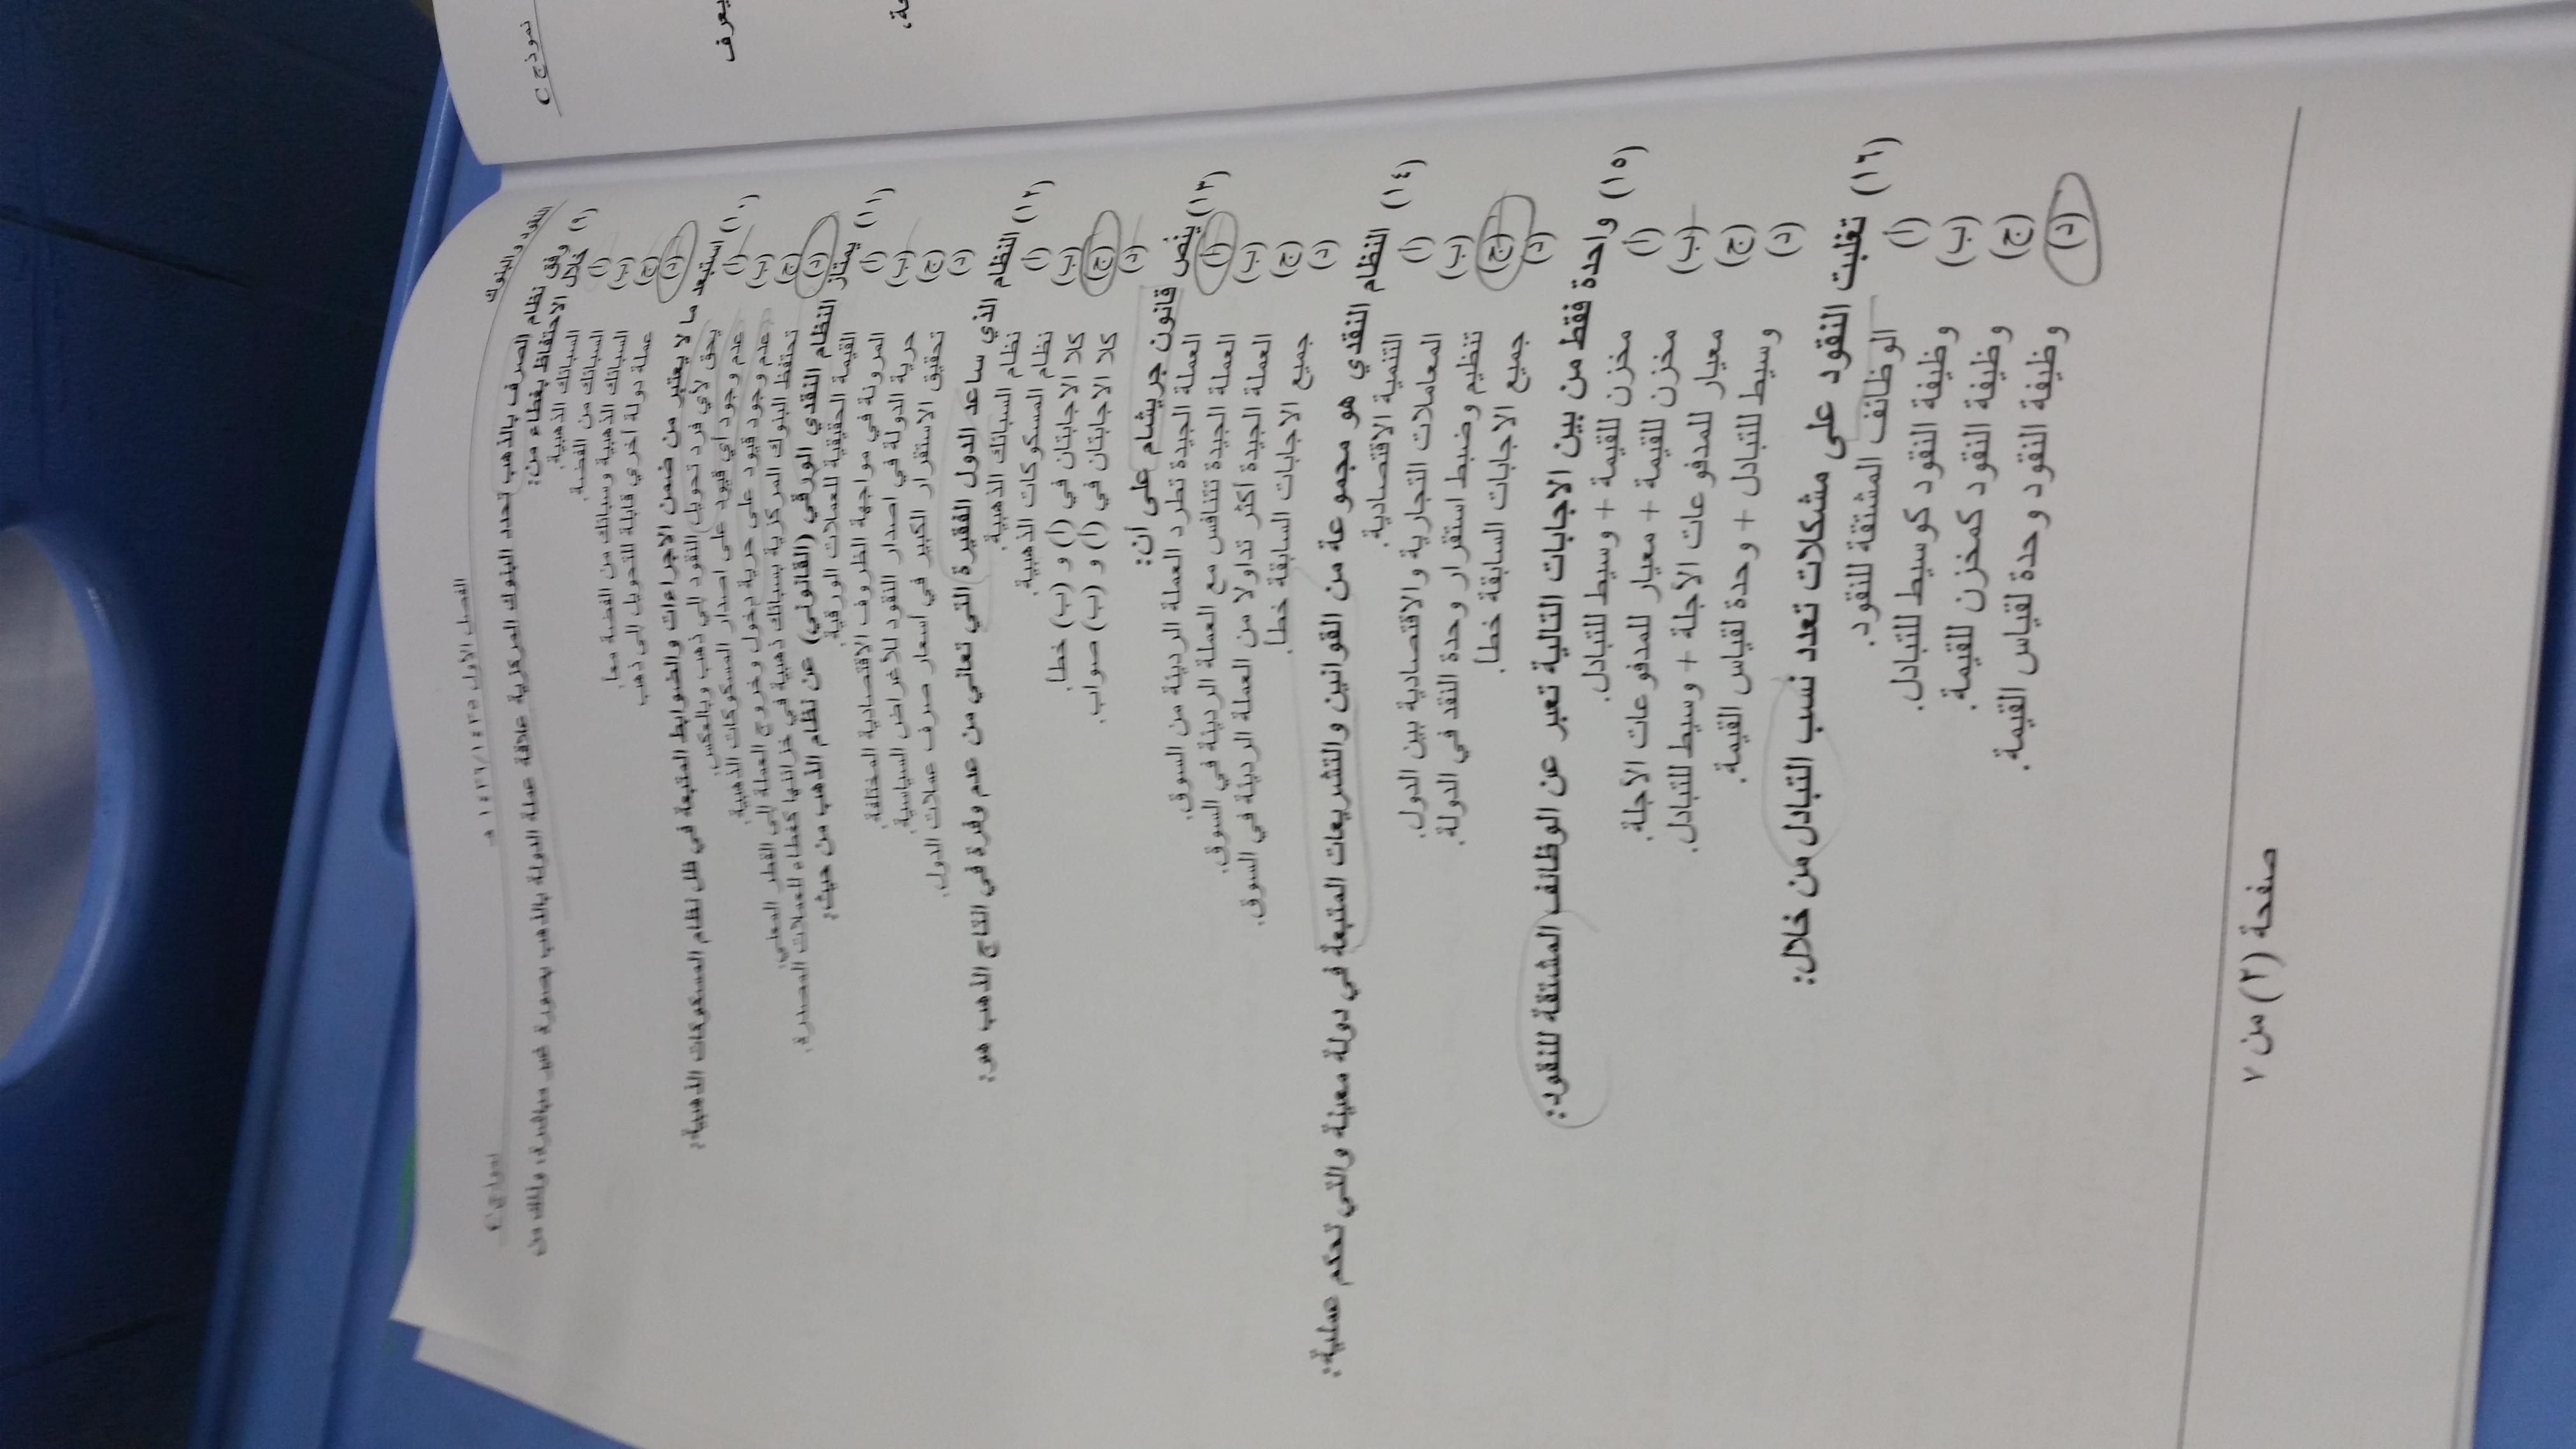 النقود والبنوك الفصل الأول ١٤٣٥/١٤٣٦ هـ
٩) وفق نظام الصرف بالذهب تحدد البنوك المركزية علاقة عملة الدولة بالذهب بصورة غير مباشرة، وذلك من
خلال الاحتفاظ بغطاء من:
(أ) السبائك الذهبية.
(ب) السبائك من الفضة.
(ج) السبائك الذهبية وسبائك من الفضة معاً
(د) عملة دولة أخرى قابلة للتحويل إلى ذهب
١٠) استبعد ما لا يعتبر من ضمن الاجراءات والضوابط المتبعة في ظل نظام المسكوكات الذهبية:
(أ) يحق لأي فرد تحويل النقود إلى ذهب وبالعكس.
(ب) عدم وجود أي قيود على اصدار المسكوكات الذهبية.
(ج) عدم وجود قيود على حرية دخول وخروج العملة إلى القطر المحلي.
(د) تحتفظ البنوك المركزية بسبائك ذهبية في خزائنها كغطاء للعملات المصدرة.
١١) يمتاز النظام النقدي الورقي (القانوني) عن نظام الذهب من حيث:
(أ) القيمة الحقيقية للعملات الورقية.
(ب) المرونة في مواجهة الظروف الاقتصادية المختلفة.
(ج) حرية الدولة في اصدار النقود للأغراض السياسية.
(د) تحقيق الاستقرار الكبير في أسعار صرف عملات الدول.
١٢) النظام الذي ساعد الدول الفقيرة التي تعاني من عدم وفرة في انتاج الذهب هو:
(أ) نظام السبائك الذهبية.
(ب) نظام المسكوكات الذهبية.
(ج) كلا الاجابتان في (أ) و (ب) خطأ.
(د) كلا الاجابتان في (أ) و (ب) صواب.
١٣) ينص قانون جريشام على أن:
(أ) العملة الجيدة تطرد العملة الرديئة من السوق.
(ب) العملة الجيدة تتنافس مع العملة الرديئة في السوق.
(ج) العملة الجيدة أكثر تداولا من العملة الرديئة في السوق.
(د) جميع الاجابات السابقة خطأ.
١٤) النظام النقدي هو مجموعة من القوانين والتشريعات المتبعة في دولة معينة والتي تحكم عملية:
(أ) التنمية الاقتصادية.
(ب) المعاملات التجارية والاقتصادية بين الدول.
(ج) تنظيم وضبط استقرار وحدة النقد في الدولة.
(د) جميع الاجابات السابقة خطأ.
١٥) واحدة فقط من بين الاجابات التالية تعبر عن الوظائف المشتقة للنقود:
(أ) مخزن للقيمة + وسيط للتبادل.
(ب) مخزن للقيمة + معيار للمدفوعات الآجلة.
(ج) معيار للمدفوعات الآجلة + وسيط للتبادل.
(د) وسيط للتبادل + وحدة لقياس القيمة.
١٦) تغلبت النقود على مشكلات تعدد نسب التبادل من خلال:
(أ) الوظائف المشتقة للنقود.
(ب) وظيفة النقود كوسيط للتبادل.
(ج) وظيفة النقود كمخزن للقيمة.
(د) وظيفة النقود وحدة لقياس القيمة.
صفحة (٢) من ٧
نموذج C
يعرف